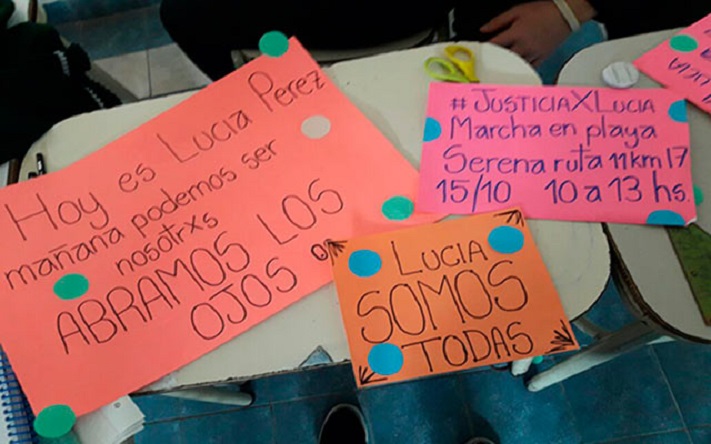 Hoy es Lucia Perez
mañana podemos ser
nosotrxs
ABRAMOS LOS
OJOS
# JUSTICIAXLUCIA
Marcha en playa
Serena ruta 11 km 17
15/10 10 a 13 hs.
LUCIA
SOMOS
TODAS